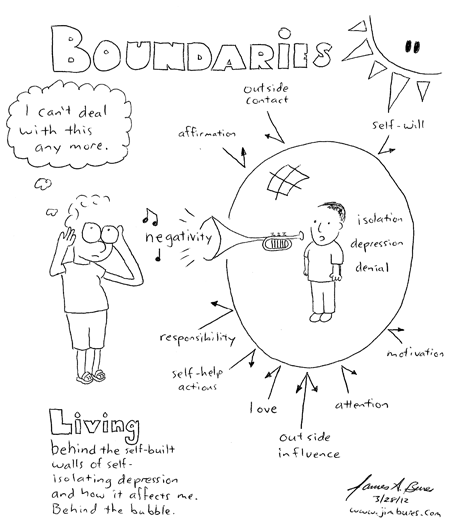 BOUNDARIES
I can't deal
with this
any more.
outside
contact
affirmation
self-will
negativity
isolation
depression
denial
responsibility
motivation
self-help
actions
love
attention
outside
influence
Living
behind the self-built
walls of self-
isolating depression
and how it affects me.
Behind the bubble.
James A. Bures
3/28/12
www.jimbures.com